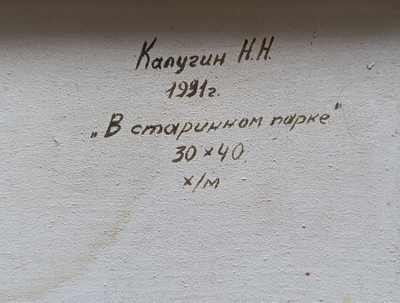 Калугин Н.Н.
1991г.
„В старинном парке"
30×40
х/м